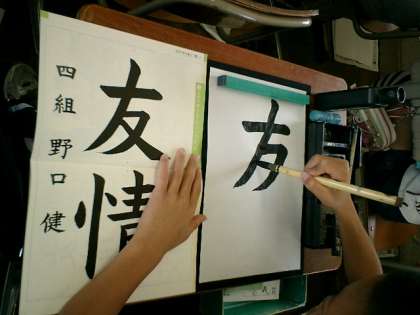 友情
四組 野口 健
友